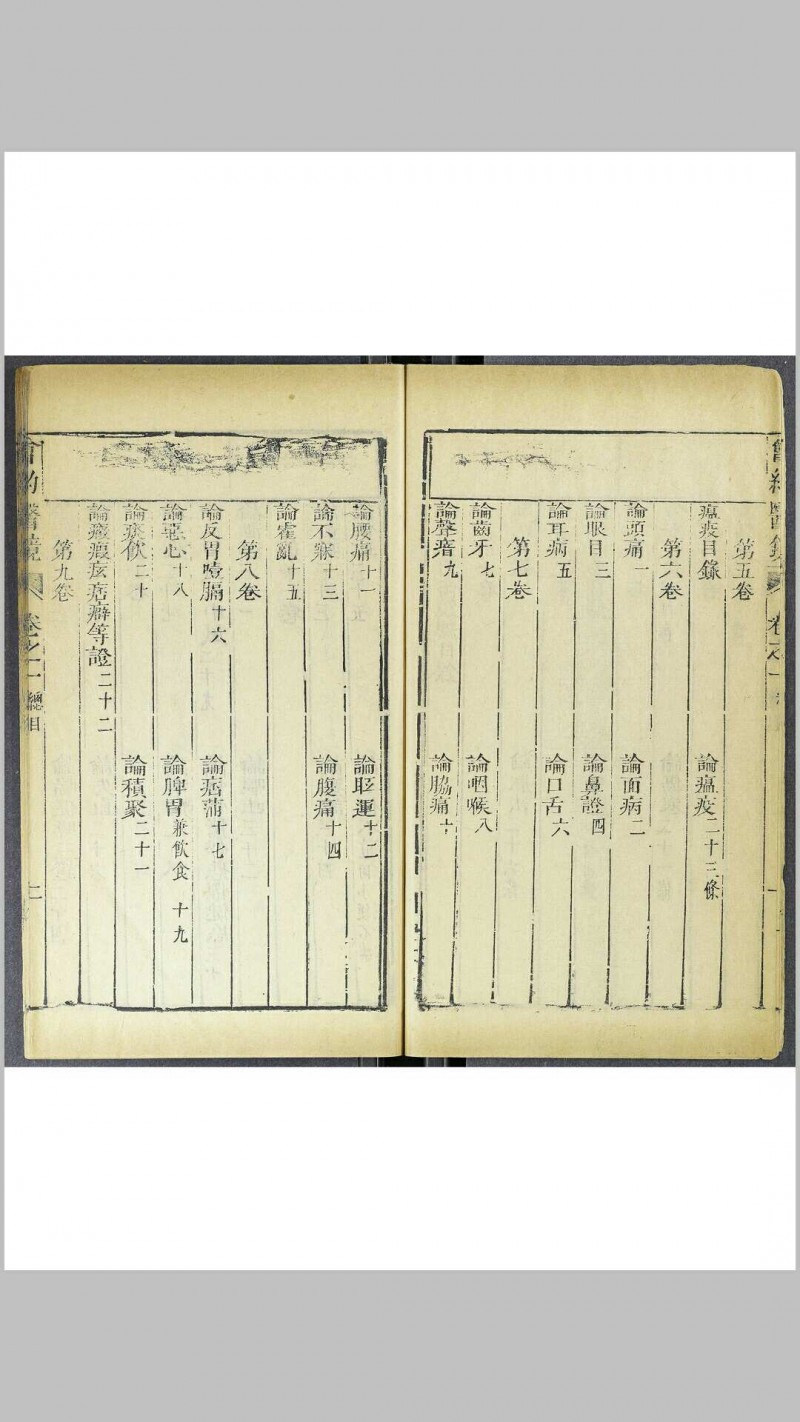 第五卷
瘟疫目錄 論瘟疫二十三條
第六卷
論頭痛一 論面病二
論眼目三 論鼻證四
論耳病五 論口舌六
第七卷
論齒牙七 論咽喉八
論聲瘖九 論脇痛十
論腰痛十一 論眩運十二
論不寐十三 論腹痛十四
論霍亂十五
第八卷
論反胃噎膈十六 論痞滿十七
論惡心十八 論脾胃兼飲食 十九
論痰飲二十 論積聚二十一
論癥瘕痃痞癖等證二十二
第九卷
會約醫鏡 卷之一 總目 二